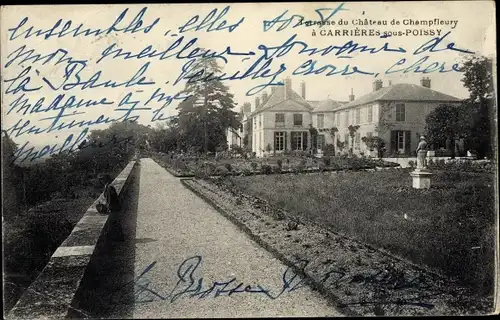 Terrasse du Château de Champfleury
à CARRIÈRES sous-POISSY
ensembles, elles sont
mon meilleur souvenir de
la Baule. Veuillez croire, chère
madame à mes
sentiments les
meilleurs